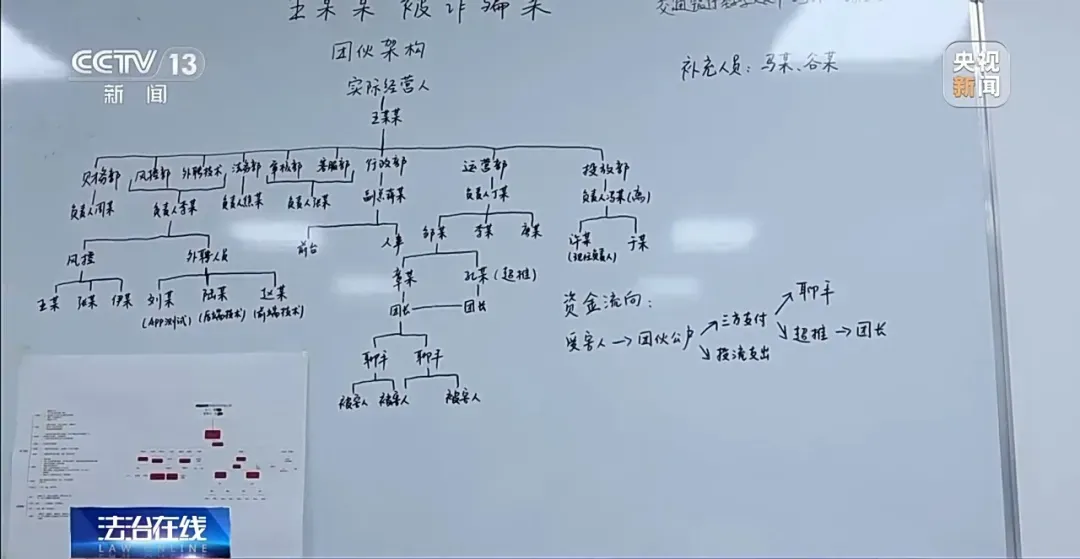 王某某被诈骗案
CCTV 13
新闻
央视
新闻
团伙架构
补充人员:马某、谷某
实际经营人
王某某
财务部 风控部 外聘技术 法务部 审核部 客服部 行政部 运营部 投放部
负责人周某 负责人李某 负责人熊某 负责人张某 副总薛某 负责人丁某 负责人冯某(离)
风控 外聘人员 前台 人事 邹某 李某 唐某 许某 于某
(现任负责人)
王某 张某 伊某 刘某 陆某 赵某 章某 孔某(超推)
(APP测试) (后端技术) (前端技术) 团长 团长
资金流向:
受害人→团伙公户 三方支付 聊手
投流支出 超推→团长
聊手 聊手
被害人 被害人 被害人
法治在线
LAW ONLINE